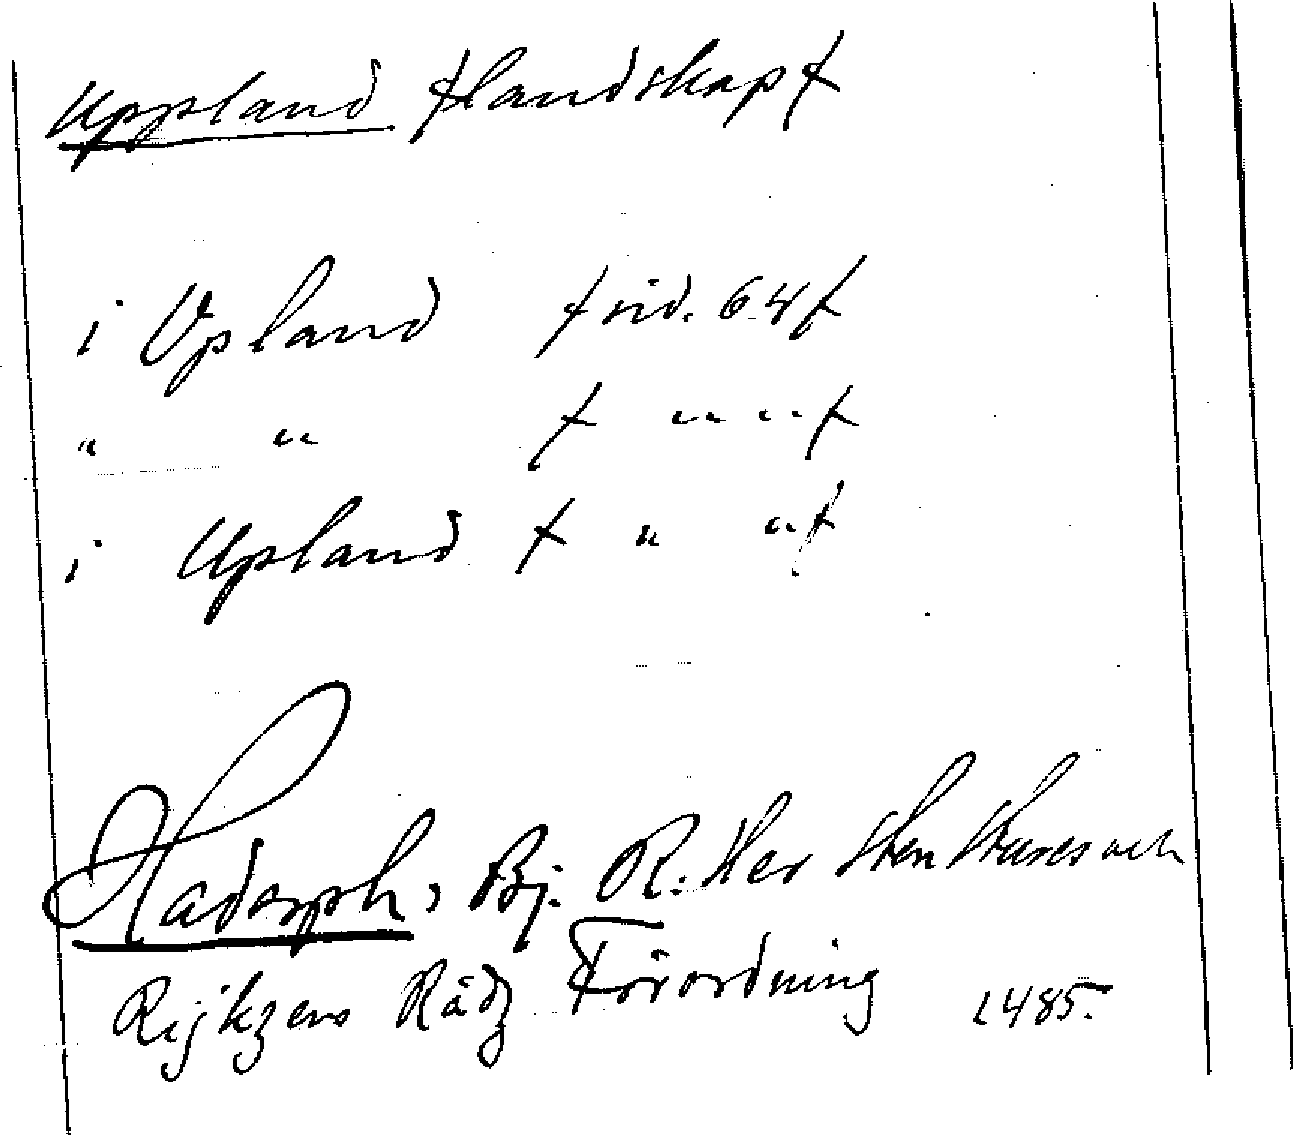 Uppland /landskap/
i Vpland /sid. 64/
" " / " " /
i Upland / " " /
Hadorph, Bj. R: Her Sten Stures och
Rijkzens Rådz Förordning 1485.